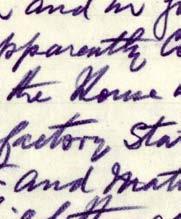 and in
apparently
the House
factory Sta
and mat
of the